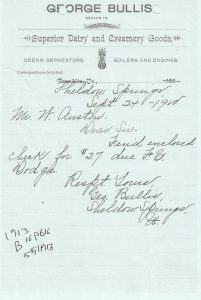 GEORGE BULLIS
DEALER IN
Superior Dairy and Creamery Goods,
CREAM SEPARATORS. BOILERS AND ENGINES.
Correspondence Solicited.
Vt., 190
Sheldon Springs
Sept 24-1900
Mr. W. Austin
Dear Sir.
Find enclosed
check for $27 due F. G.
Dodge
Respt Yours,
Geo. Bullis,
Sheldon Springs
Vt
1713